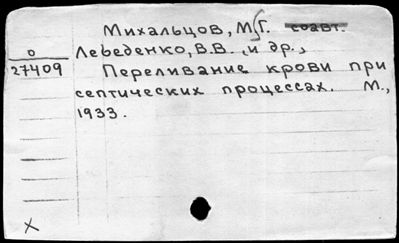 Михальцов, М.Г. соавт.
о Лебеденко, В.В. и др.,
27409 Переливание крови при
септических процессах. М.,
1933.
X